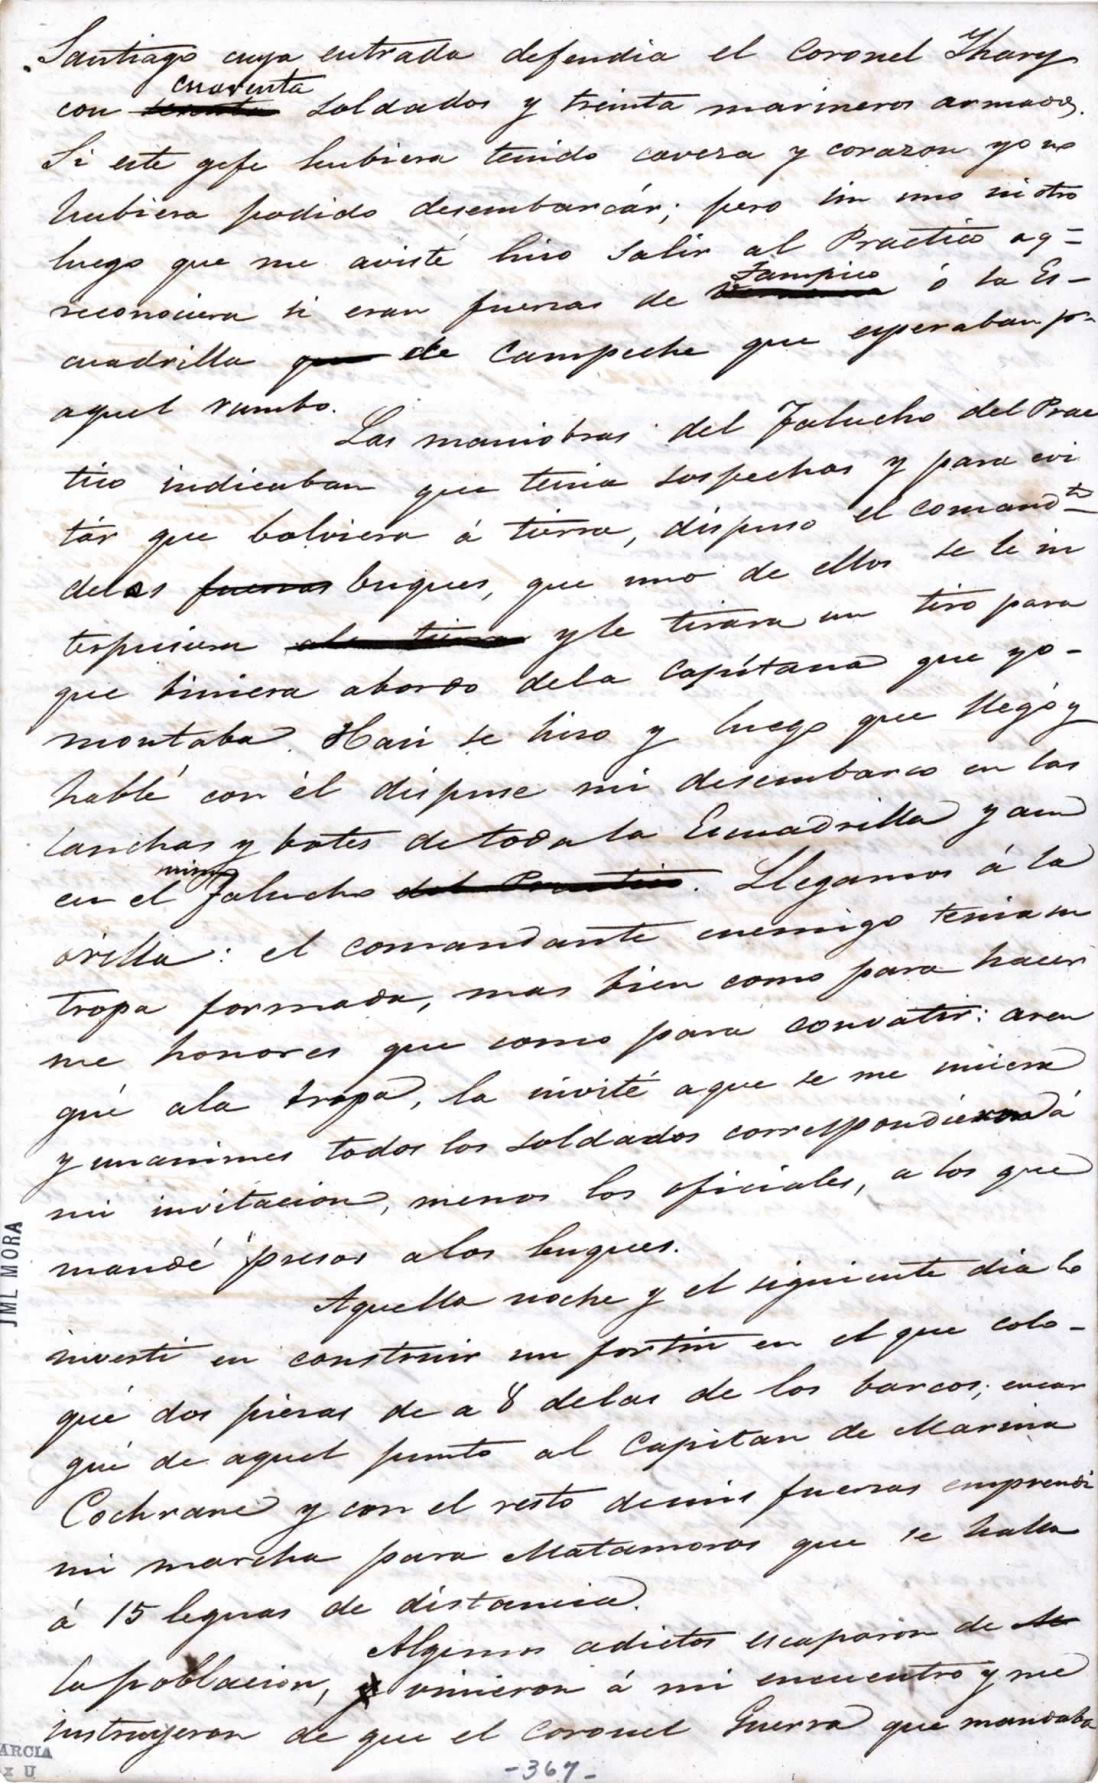 Santiago cuya entrada defendia el Coronel Thary
cuarenta
con soldados y treinta marineros armados.
Si este gefe hubiera tenido caveza y corazon yo no
hubiera podido desembarcár; pero sin uno ni otro
luego que me avisté hiso salir al Practico aq=
Tampico
reconociera si eran fuerzas de ó la Es-
cuadrilla que de Campeche que esperaban pr
aquel rumbo.
Las maniobras del Falucho del Prac
tico indicaban que tenia sospechas y para evi
tár que bolviera á tierra, dispuso el comandte
delos fuerzas buques, que uno de ellos se le in
terpusiera y le tirara un tiro para
que biniera abordo dela Capitana que yo-
montaba. Hasi se hiso y luego que llegó y
hablé con él dispuse mi desembarco en las
lanchas y botes de toda la Escuadrilla y aun
mismo
en el Falucho del Practico. Llegamos á la
orilla: el comandante enemigo tenia su
tropa formada, mas bien como para hacer
me honores que como para convatir: aren
gué ala tropa, la invité aque se me uniera
y unanimes todos los soldados correspondieron á
mi invitacion, menos los oficiales, a los que
mandé presos alos buques.
Aquella noche y el siguiente dia lo
inverti en construir un fortin en el que colo-
qué dos piezas de a 8 delas de los barcos; encar
gué de aquel punto al Capitan de Marina
Cochrane y con el resto demis fuerzas emprendi
mi marcha para Matamoros que se halla
á 15 leguas de distancia.
Algunos adictos escaparon de la
la poblacion, y vinieron á mi encuentro y me
instruyeron de que el coronel Guerra que mandaba
-367-
JML MORA
ARCIA
x U